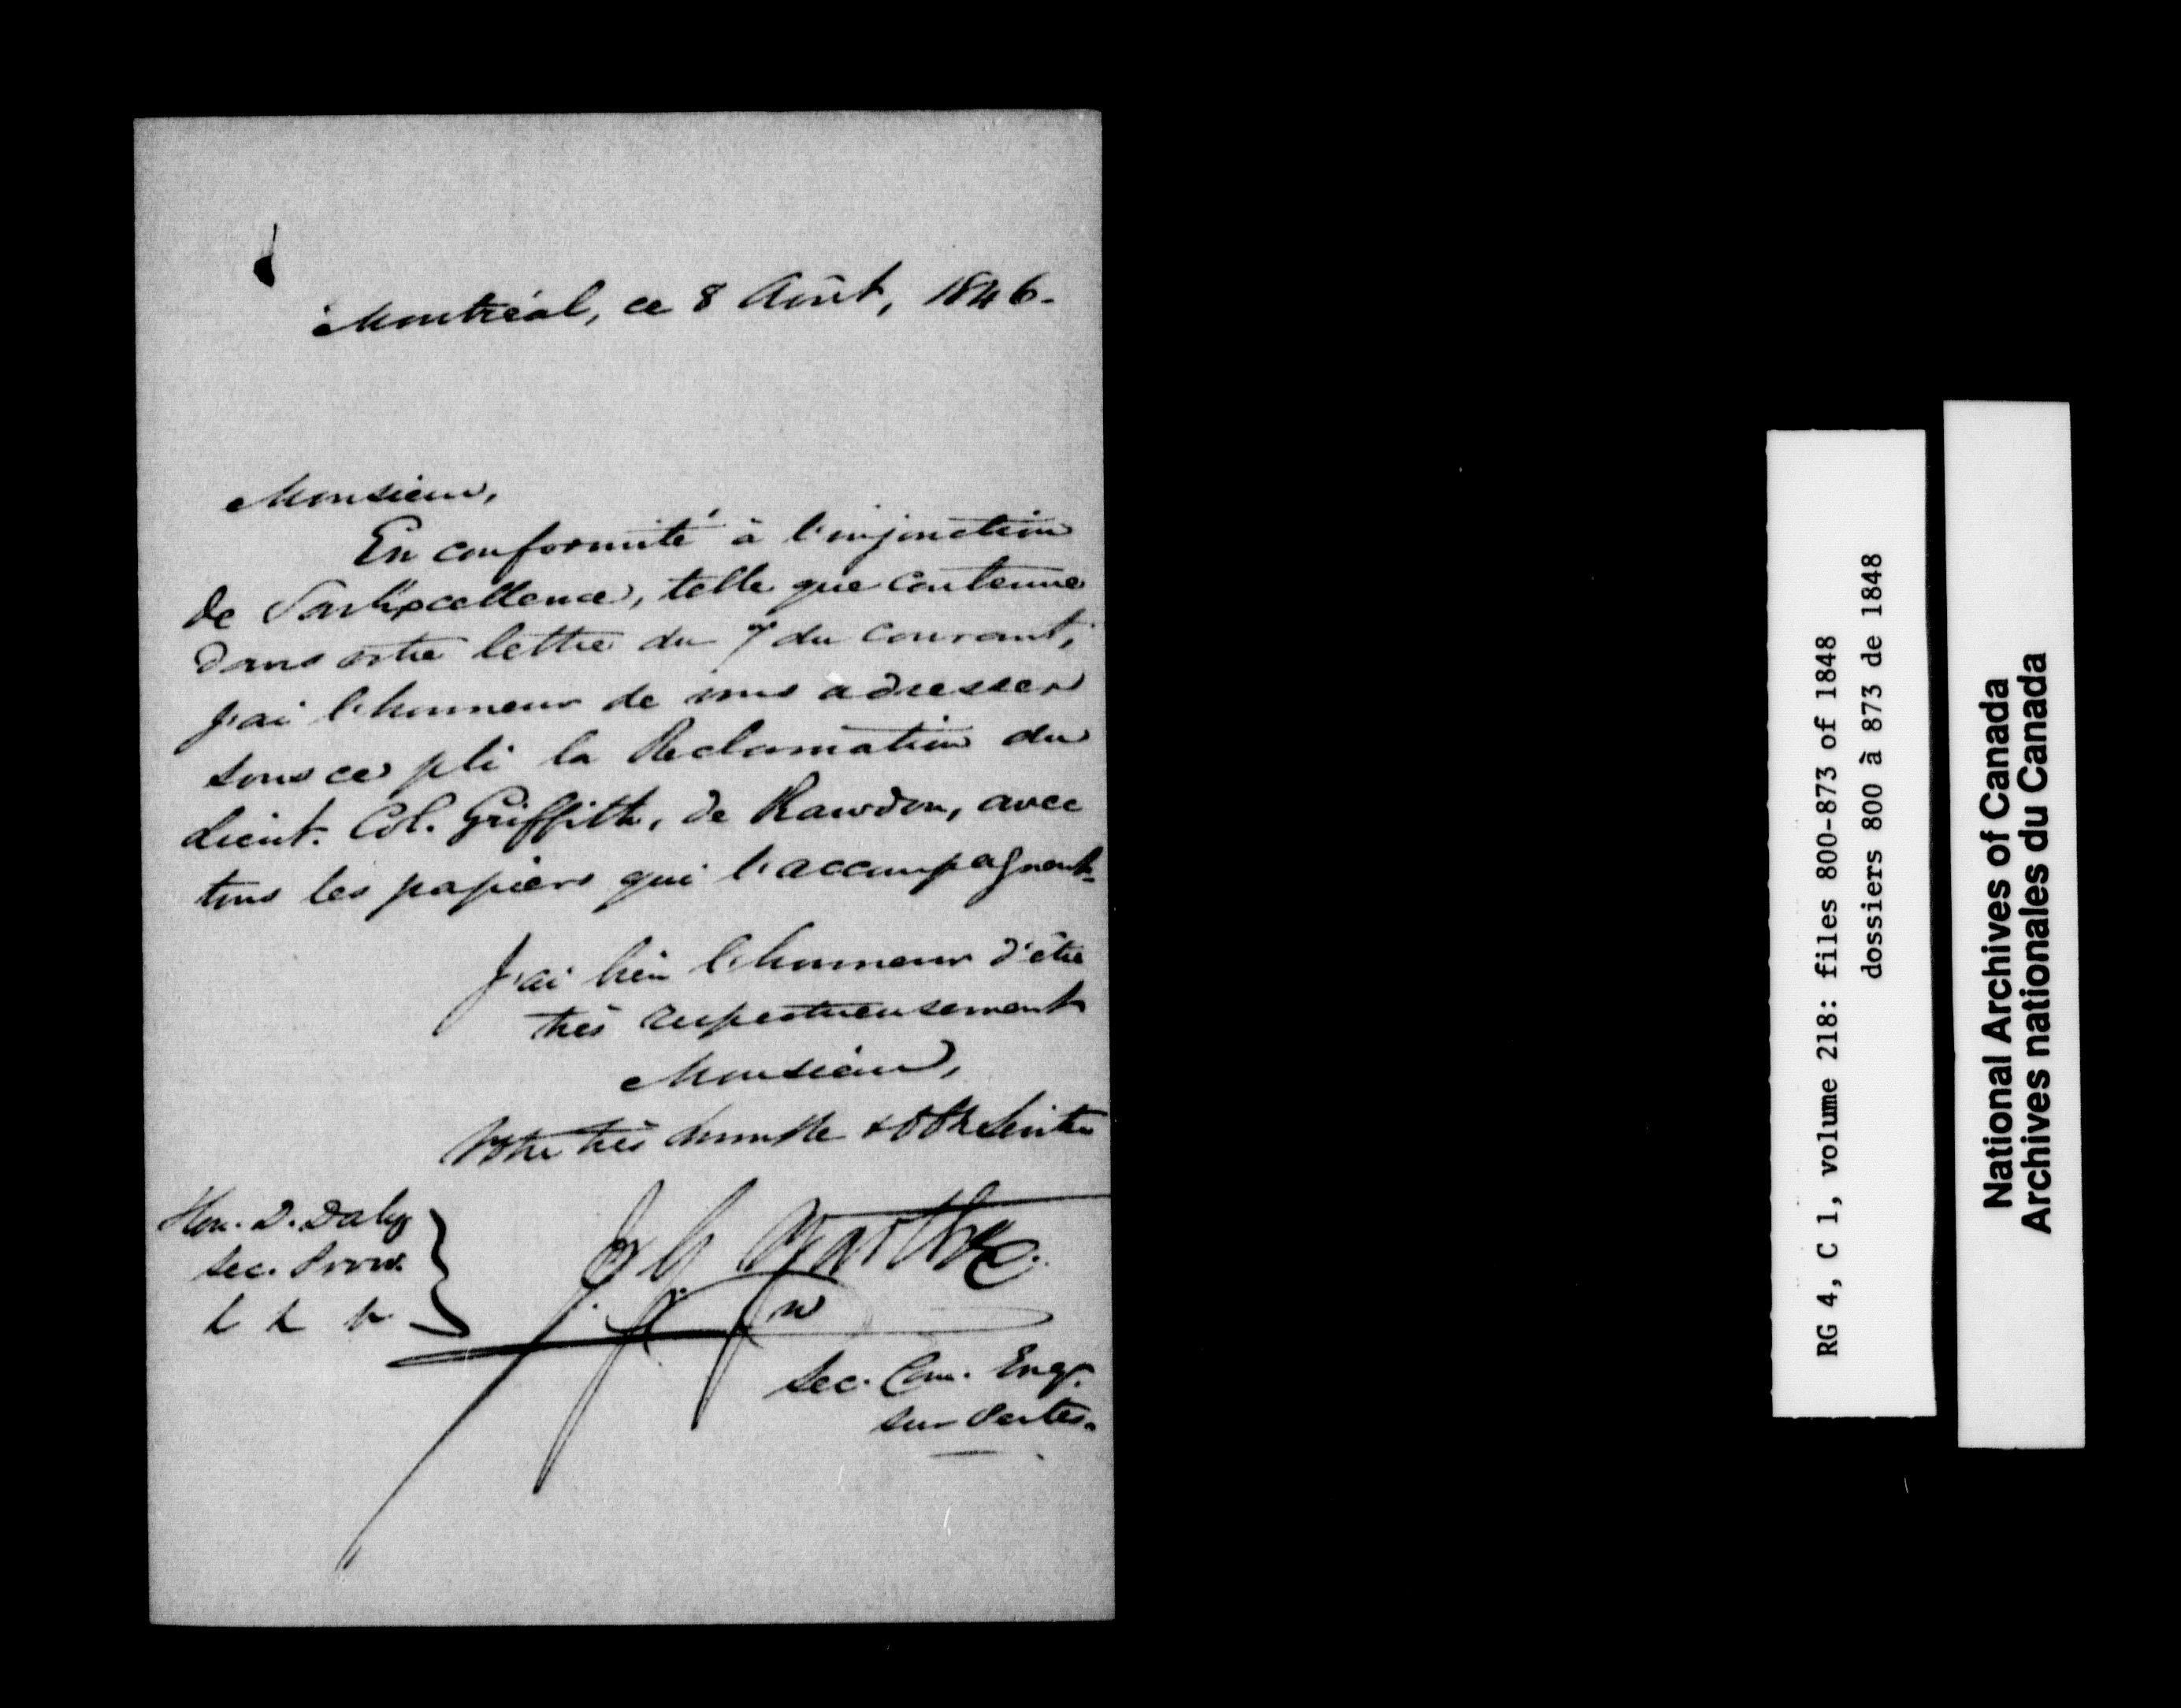 Montréal, ce 8 Août, 1846.
Monsieur,
En conformité à l'injonction
de Son Excellence, telle que contenue
dans votre lettre du 7 du courant,
j'ai l'honneur de vous adresser
sous ce pli la Reclamation du
Lieut. Col. Griffith, de Rawdon, avec
tous les papiers qui l'accompagnent.
J'ai bien l'honneur d'être
très respectueusement
Monsieur,
Votre très humble & Obt Serviteur
J. G. Barthe
Hon. D. Daly
Sec. Prov.
Sec. Com. Enq.
sur Pertes.
RG 4, C 1, volume 218: files 800-873 of 1848
dossiers 800 à 873 de 1848
National Archives of Canada
Archives nationales du Canada